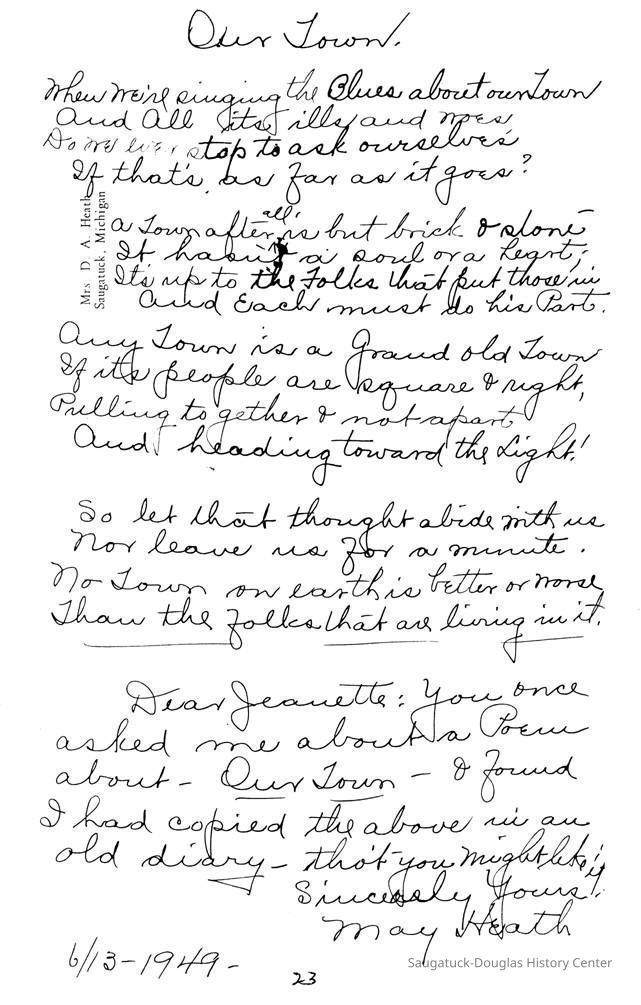 Our Town.
When we're singing the Blues about our Town
And All its ills, and woes,
Do we ever stop to ask ourselves
If that's as far as it goes?
Mrs D. A. Heath
Saugatuck, Michigan
a Town after all, is but brick & stone
It hasn't a soul or a heart;
Its up to the Folks that put those in
And Each must do his Part.
Any Town is a Grand old Town
If its people are square & right,
Pulling together & not apart
And heading toward the Light!
So let that thought abide with us
Nor leave us for a minute.
No Town on earth is better or worse
Than the folks that are living in it.
Dear Jeanette: You once
asked me about a Poem
about - Our Town - & found
I had copied the above in an
old diary - tho't you might like it!
Sincerely Yours!
May Heath
6/13-1949-
23
Saugatuck-Douglas History Center